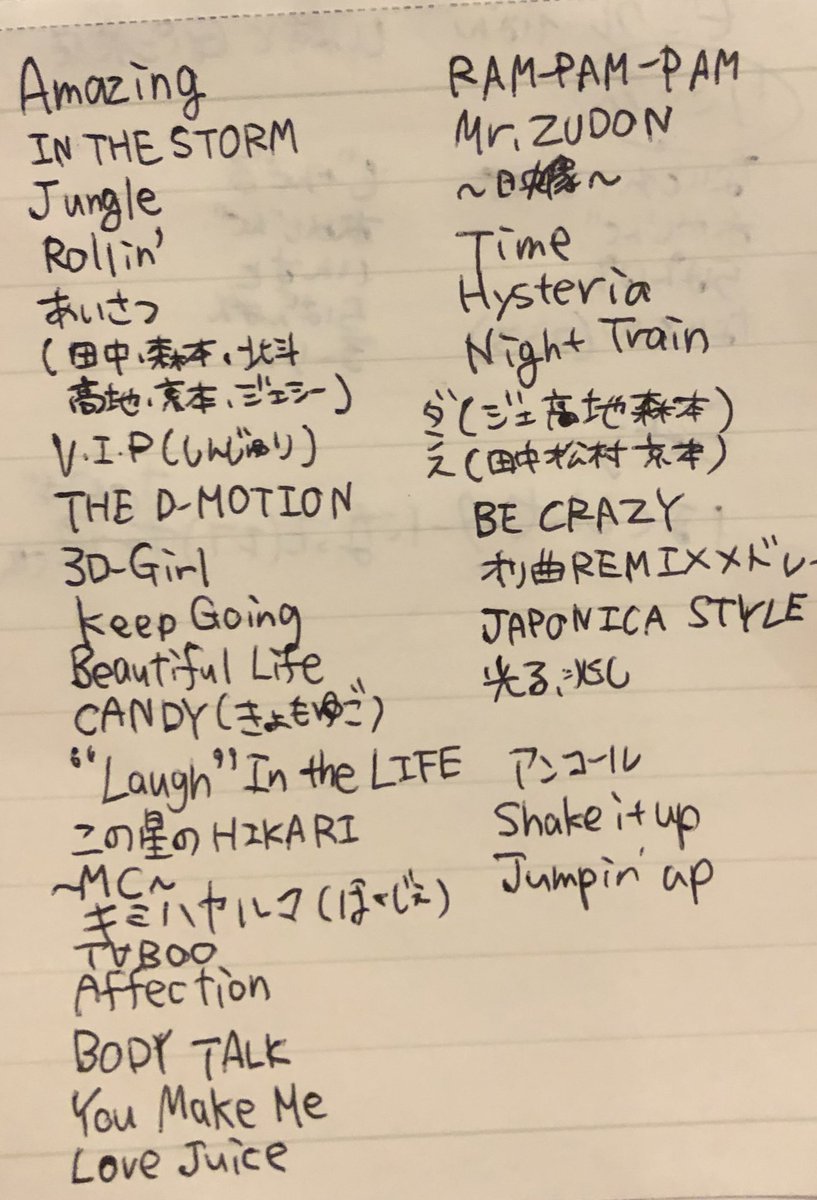 Amazing
IN THE STORM
Jungle
Rollin'
あいさつ
(田中、森本、北斗
高地、京本、ジェシー)
V.I.P(しんじゅり)
THE D-MOTION
3D-Girl
Keep Going
Beautiful Life
CANDY(きょもゆご)
"Laugh" In the LIFE
この星のHIKARI
~MC~
キミハヤルコ(ほくじぇ)
TABOO
Affection
BODY TALK
You Make Me
Love Juice
RAM-PAM-PAM
Mr.ZUDON
~映像~
Time
Hysteria
Night Train
ダ(ジェ高地森本)
え(田中松村京本)
BE CRAZY
オリ曲REMIXメドレー
JAPONICA STYLE
光る、兆し
アンコール
Shake it up
Jumpin' up